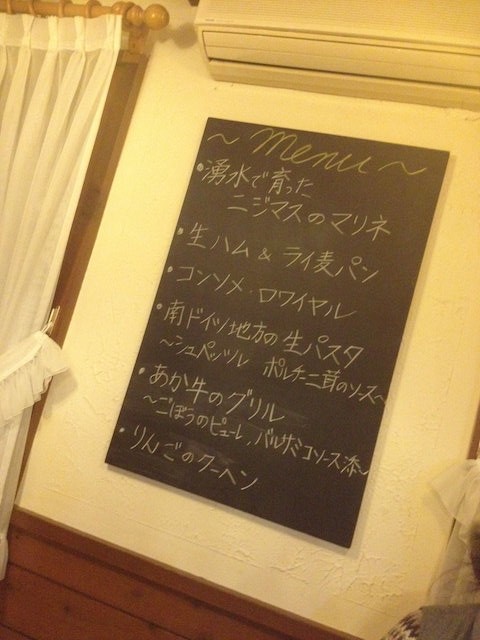 ～ Menu ～
・湧水で育った
ニジマスのマリネ
・生ハム & ライ麦パン
・コンソメ・ロワイヤル
・南ドイツ地方の生パスタ
～シュペッツル ポルチーニ茸のソース～
・あか牛のグリル
～ごぼうのピューレ, バルサミコソース添～
・りんごのクーヘン